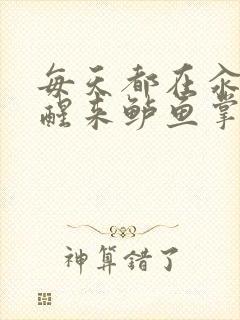 每天都在汆
醒来鲈鱼掌
神算错了